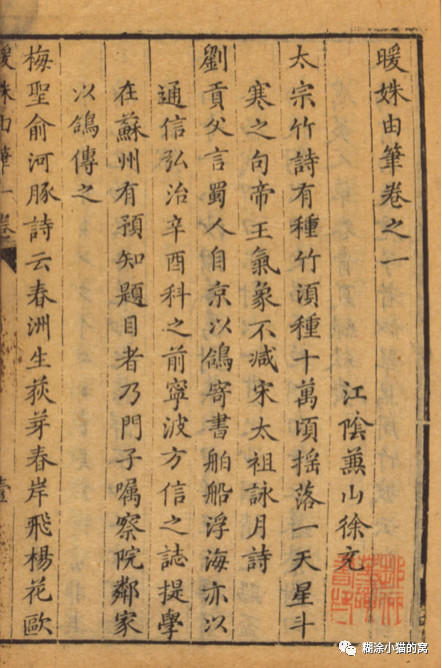 暖姝由筆卷之一
江陰兼山徐充
太宗竹詩有種竹湏種十萬頃揺落一天星斗
寒之句帝王氣象不减宋太祖詠月詩
劉貢父言蜀人自京以鴿寄書舶船浮海亦以
通信弘治辛酉科之前寧波方信之誌提學
在蘇州有預知題目者乃門子嘱察院鄰家
以鴿傳之
梅聖俞河豚詩云春洲生荻芽春岸飛楊花歐
暖姝由筆一卷
壹
糊涂小猫的窝